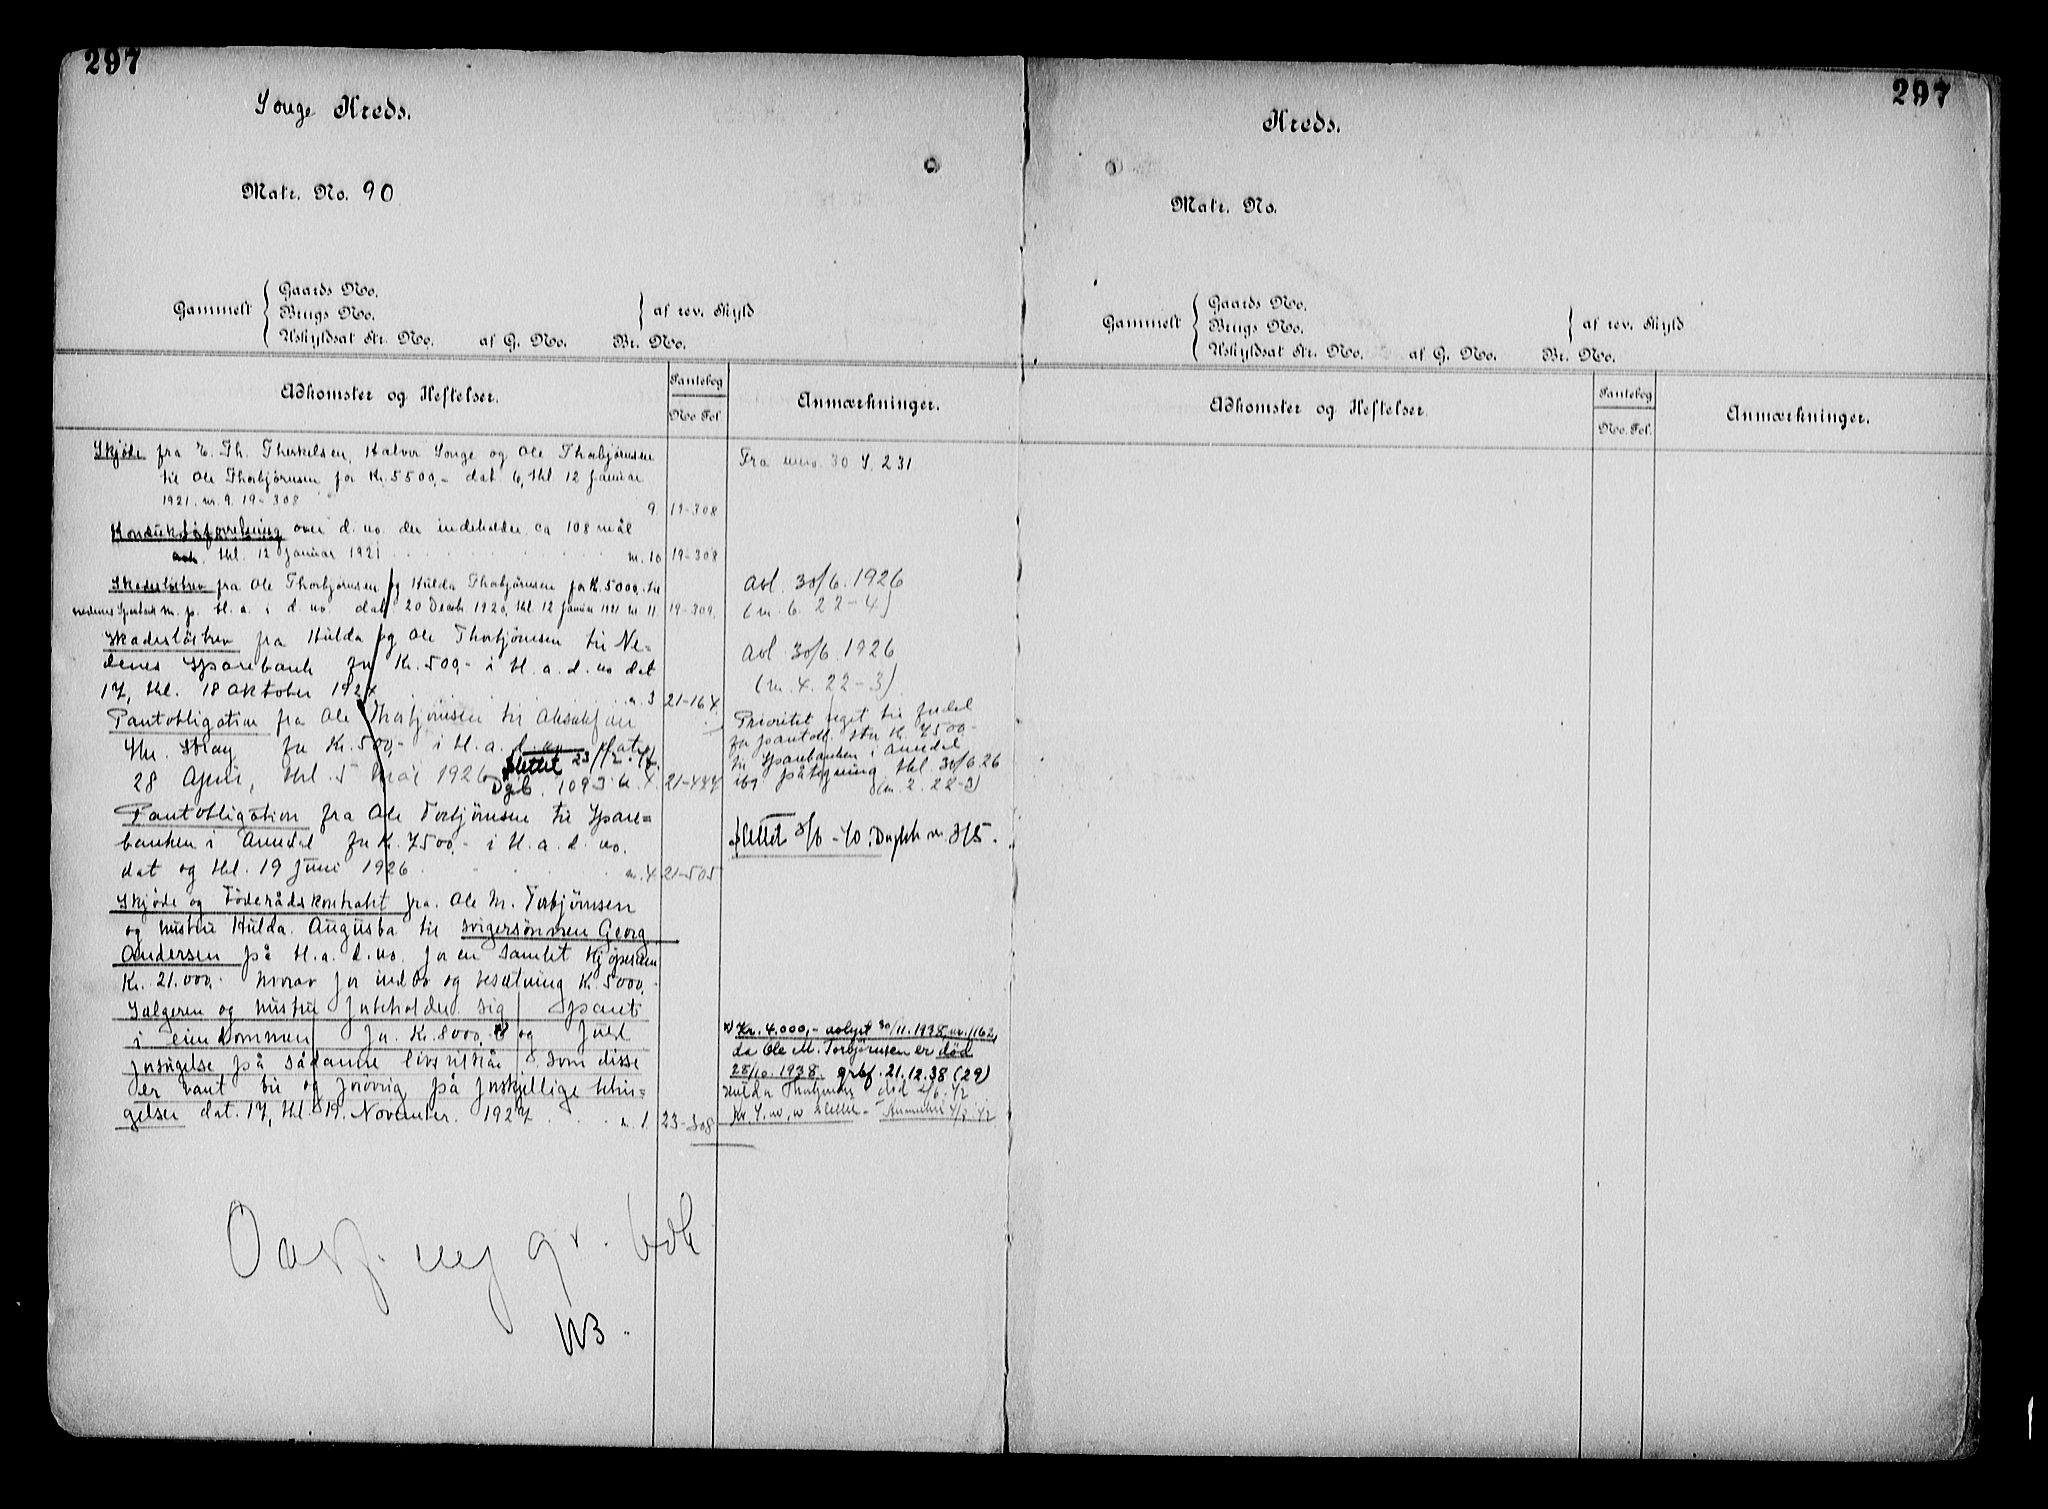 297
Songe Kreds.
Matr. No. 90
Gammelt
Gaards No.
Brugs No.
Uskyldsat Str. No. af G. No. Br. No.
af rev. Skyld
Adkomster og Heftelser.
Pantebog
No. Fol.
Anmærkninger.
Skjøde fra T. Th. Therkelsen, Halvor Songe og Ole Thorbjørnsen
til Ole Thorbjørnsen for Kr. 5500,- dat 6, thl 12 Januar
1921. nr. 9. 19-308
9. 19-308
Fra 30 231
Konduktørforretning over d. no. der indeholder ca 108 mål
thl. 12 Januar 1921 nr. 10 19-308
Skadesløsbrev fra Ole Thorbjørnsen og Hulda Thorbjørnsen for Kr. 5000,- til
Nedenes Spareb. m. p. H. a. i d. no. dat. 20 Decbr 1920, thl 12 Januar 1921 nr 11 19-309.
avl. 30/6. 1926
(nr. 6. 22-4)
Skadesløsbrev fra Hulda og Ole Thorbjørnsen til Ne-
denes Sparebank for Kr. 500,- i H. a. d. no dat
17, thl. 18 Oktober 1924 nr. 3 21-164
avl 30/6. 1926
(nr. 4. 22-3)
Pantobligation fra Ole Thorbjørnsen til
Chr. Stray for Kr. 500,- i H. a. d. no dat
28 April, thl. 5 mai 1926 nr. 4. 21-444
Slettet 23/12.
Dgb. 1093
Prioritet veget til fordel
for pantobl. stor Kr. 7500,-
til Sparebanken i Arendal
iflg påtegning thl. 30/6.26
(nr. 2. 22-3)
Pantobligation fra Ole Torbjørnsen til Spare=
banken i Arendal for Kr. 7500,- i H. a. d. no.
dat og thl. 19 Juni 1926 nr. 4 21-505
Slettet 3/6 - 40. Dagbk nr. 315.
Skjøde og Føderådskontrakt fra. Ole M. Torbjørnsen
og hustru Hulda. Augusta til svigersønnen Georg
Andersen på H. a. d. no. for en samlet Kjøpesum
Kr. 21.000,- hvorav for indbo og besætning Kr. 5000,-
Sælgeren og hustru forbeholder sig pant
i eiendommen for Kr. 8000,- x) og fuld
forsørgelse på sådanne livsvilkår som disse
er vant til og forøvrig på forskjellige betin=
gelser dat. 17, thl. 19. November. 1927 nr. 1. 23-308
x) Kr. 4.000,- avlyst 30/11. 1938, nr. 1162,
da Ole M. Torbjørnsen er død
28/10. 1938. grbf. 21.12.38 (29)
Hulda Thorbjørnsen død 2/6.
Overf. ny gr. bok
NB.
297
Kreds.
Matr. No.
Gammelt
Gaards No.
Brugs No.
Uskyldsat Str. No. af G. No. Br. No.
af rev. Skyld
Adkomster og Heftelser.
Pantebog
No. Fol.
Anmærkninger.